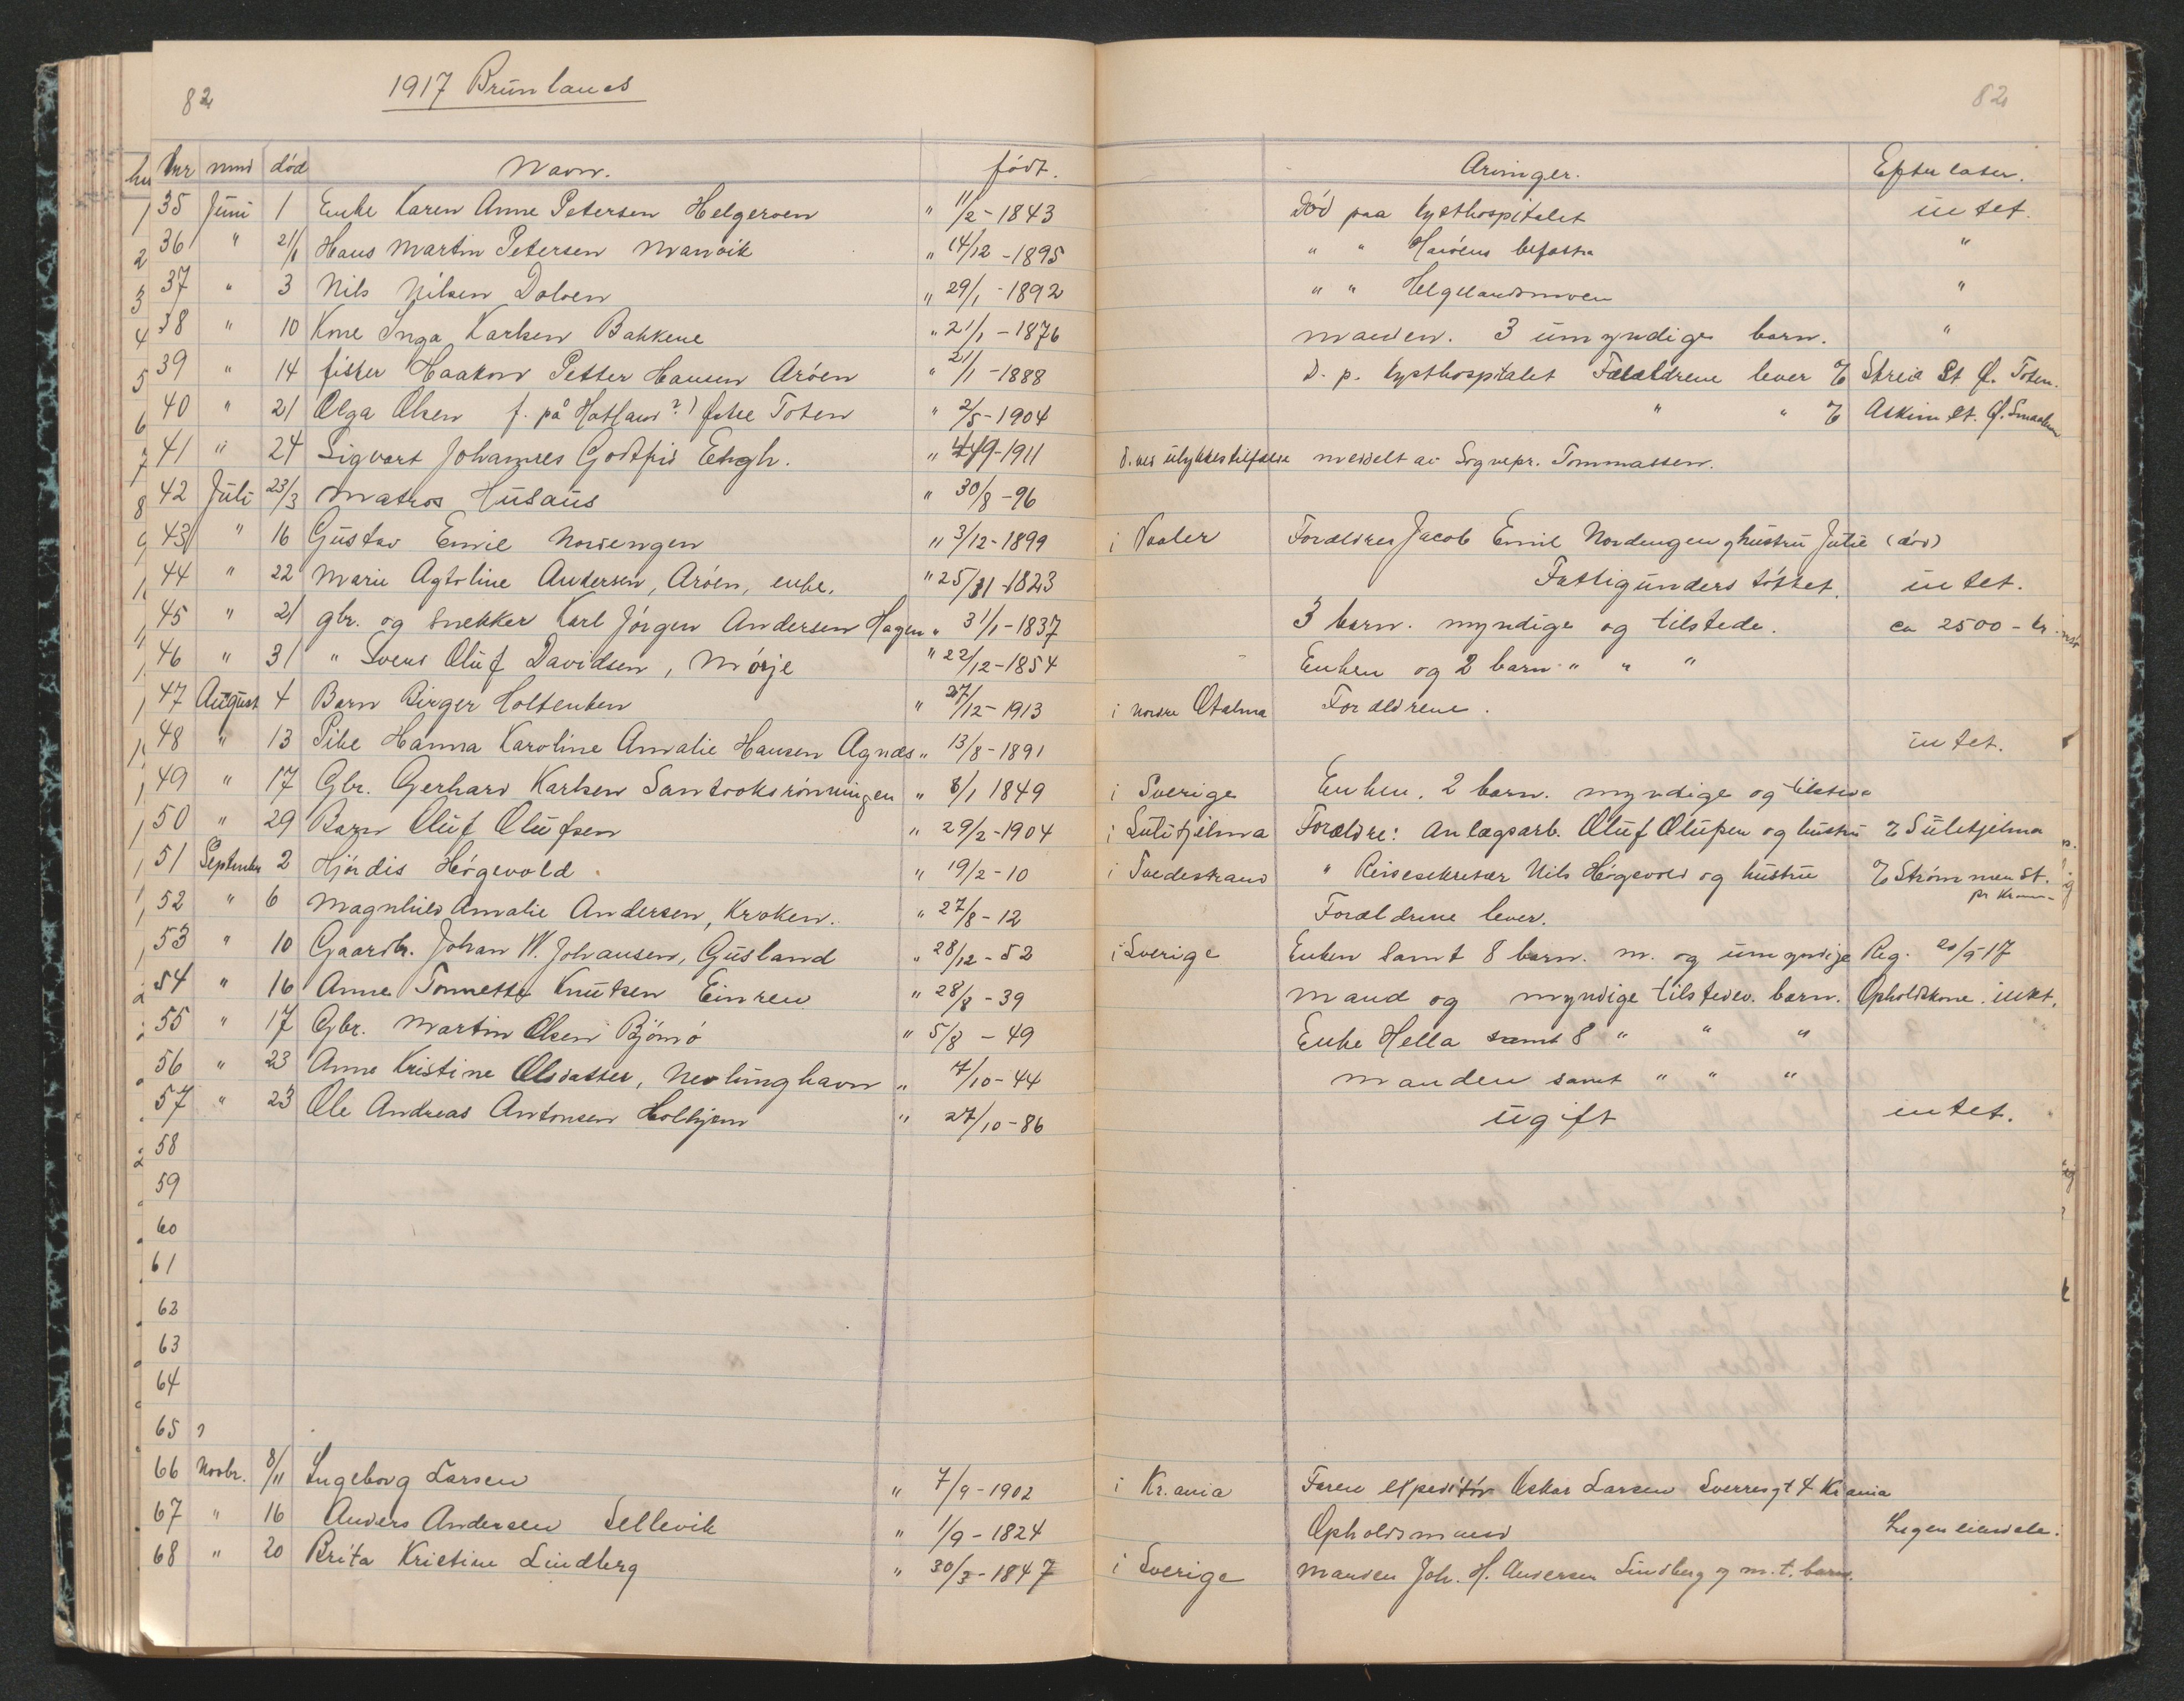 82 1917 Brunlanes 82
hnr mnd død Navn. født. Arvinger. Efterlater.
35 Juni 1 Enke Karen Anne Petersen Helgeroen " 11/2-1843 Død paa Kysthospitalet intet.
36 " 21/1 Hans Martin Petersen Manvik " 14/12-1895 " " Harøens befæstn "
37 " 3 Nils Nilsen Dolven " 29/1-1892 " " Helgelandsmoen "
38 " 10 Kone Inga Karlsen Bakkene " 21/1-1876 manden. 3 umyndige barn. "
39 " 14 fisker Haakon Petter Hansen Arøen " 21/1-1888
40 " 21 Olga Olsen f. på Hotland?) Østre Toten " 2/5-1904 D. p. Kysthospitalet Forældrene lever % Skreia St Ø. Toten.
41 " 24 Sigvart Johannes Godtfrid Engh. " 4/9-1911 " " % Askim St. Ø. Smaalen
42 Juli 23/3 Matros Husaas " 30/8-96 d. ved ulykkestilfælde meddelt av Sognepr. Tommassen.
43 " 16 Gustav Emil Nordengen " 3/12-1899 i Vaaler Forældres Jacob Emil Nordengen og hustru Julie (død)
44 " 22 Marie Agtoline Andersen, Arøen, enke. " 25/31-1823 Fattigunderstøttet. intet.
45 " 21 gbr. og snekker Karl Jørgen Andersen Hagen " 31/1-1837 3 barn. myndige og tilstede. ca 2500- kr.
46 " 31 " Svend Oluf Davidsen, Mørje " 22/12-1854 Enken og 2 barn " " "
47 August 4 Barn Birger Holtenken " 27/12-1913 i Nordre Otalma Forældrene.
48 " 13 Pike Hanna Karoline Amalie Hansen Agnæs " 13/8-1891 intet.
49 " 17 Gbr. Gerhard Karlsen Santvoksrønningen " 8/1 1849 i Sverige Enken. 2 barn. myndige og tilstede
50 " 29 Barn Oluf Olufsen " 29/2-1904 i Sulitjelma Forældre: Anlægsarb. Oluf Olufsen og hustru % Sulitjelma
51 September 2 Hjørdis Høgevold. " 19/2-10 i Tvedestrand " Reisesekretær Nils Høgevold og hustru % Strømmen St. pr Krania
52 " 6 Magnhild Amalie Andersen, Kroken. " 27/8-12 Forældrene lever.
53 " 10 Gaardbr. Johan W. Johansen, Gusland " 28/12-52 i Sverige Enken samt 8 barn. m. og umyndige Reg. 20/9-17
54 " 16 Anne Tonnette Knutsen Einren " 28/8-39 Mand og myndige tilstedev. barn. Opholdskone. intet.
55 " 17 Gbr. Martin Olsen Bjønnø " 5/8-49 Enke Hella samt 8 " " "
56 " 23 Anne Kristine Olsdatter, Nevlunghavn " 7/10-44 Manden samt " " "
57 " 23 Ole Andreas Antonsen Holhjem " 27/10-86 ugift intet.
58
59
60
61
62
63
64
65 ?
66 Novbr. 8/11 Ingeborg Larsen " 7/9-1902 i Kr.ania Faren expeditør Oskar Larsen Sverresgt 4 Krania
67 " 16 Anders Andersen Sellevik " 1/9-1824 Opholdsmand Ingen eiendele.
68 " 20 Brita Kristine Lindberg " 30/3-1847 i Sverige Manden Joh. H. Andersen Lindberg og m.t. barn.